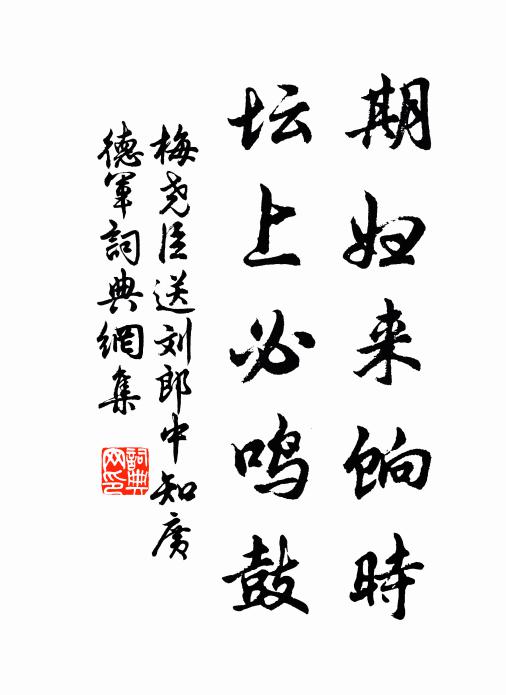 期妇来饷時
坛上必鸣鼓
梅尧臣送刘郎中知廣
德軍詞典網集
詞典网印